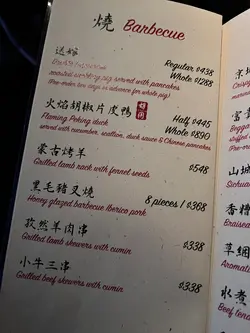 燒 Barbecue
Regular $438
roasted suckling pig served with pancakes Whole $1288
(Pre-order two days in advance for whole pig)
火焰胡椒片皮鴨
Flaming Peking duck Half $445
served with cucumber, scallion, duck sauce & Chinese pancakes Whole $890
蒙古烤羊
Grilled lamb rack with fennel seeds $548
黑毛豬叉燒
Honey glazed barbecue Iberico pork 8 pieces / $368
孜然羊肉串
Grilled lamb skewers with cumin $338
小牛三串
Grilled beef tenders with cumin $338
京
富貴
Beggar
山城
Sichu
香辣
Braise
草綑
Aromat
水煮